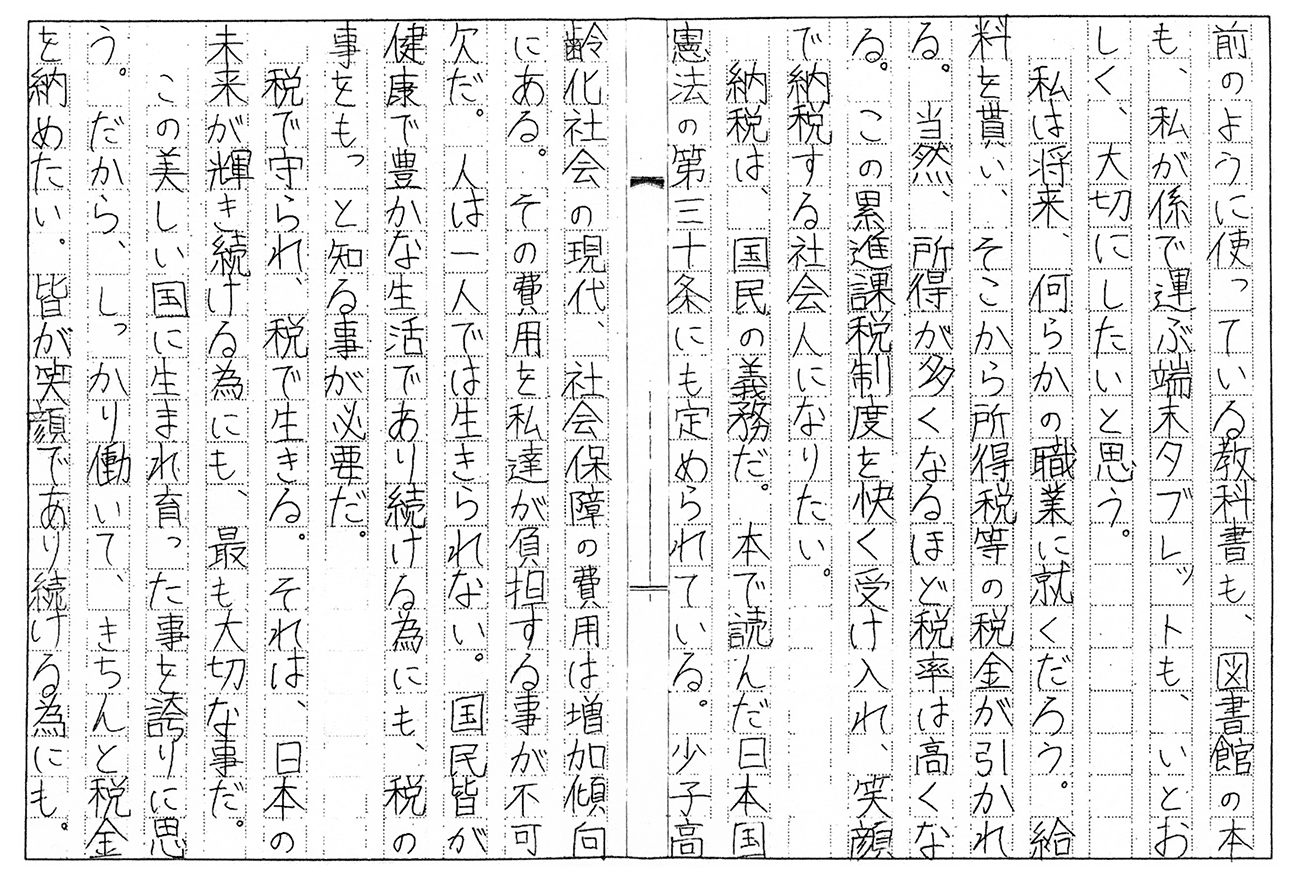 前のように使っている教科書も、図書館の本
も、私が係で運ぶ端末タブレットも、いとお
しく、大切にしたいと思う。
私は将来、何らかの職業に就くだろう。給
料を貰い、そこから所得税等の税金が引かれ
る。当然、所得が多くなるほど税率は高くな
る。この累進課税制度を快く受け入れ、笑顔
で納税する社会人になりたい。
納税は、国民の義務だ。本で読んだ日本国
憲法の第三十条にも定められている。少子高
齢化社会の現代、社会保障の費用は増加傾向
にある。その費用を私達が負担する事が不可
欠だ。人は一人では生きられない。国民皆が
健康で豊かな生活であり続ける為にも、税の
事をもっと知る事が必要だ。
税で守られ、税で生きる。それは、日本の
未来が輝き続ける為にも、最も大切な事だ。
この美しい国に生まれ育った事を誇りに思
う。だから、しっかり働いて、きちんと税金
を納めたい。皆が笑顔であり続ける為にも。